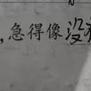 ,急得像没